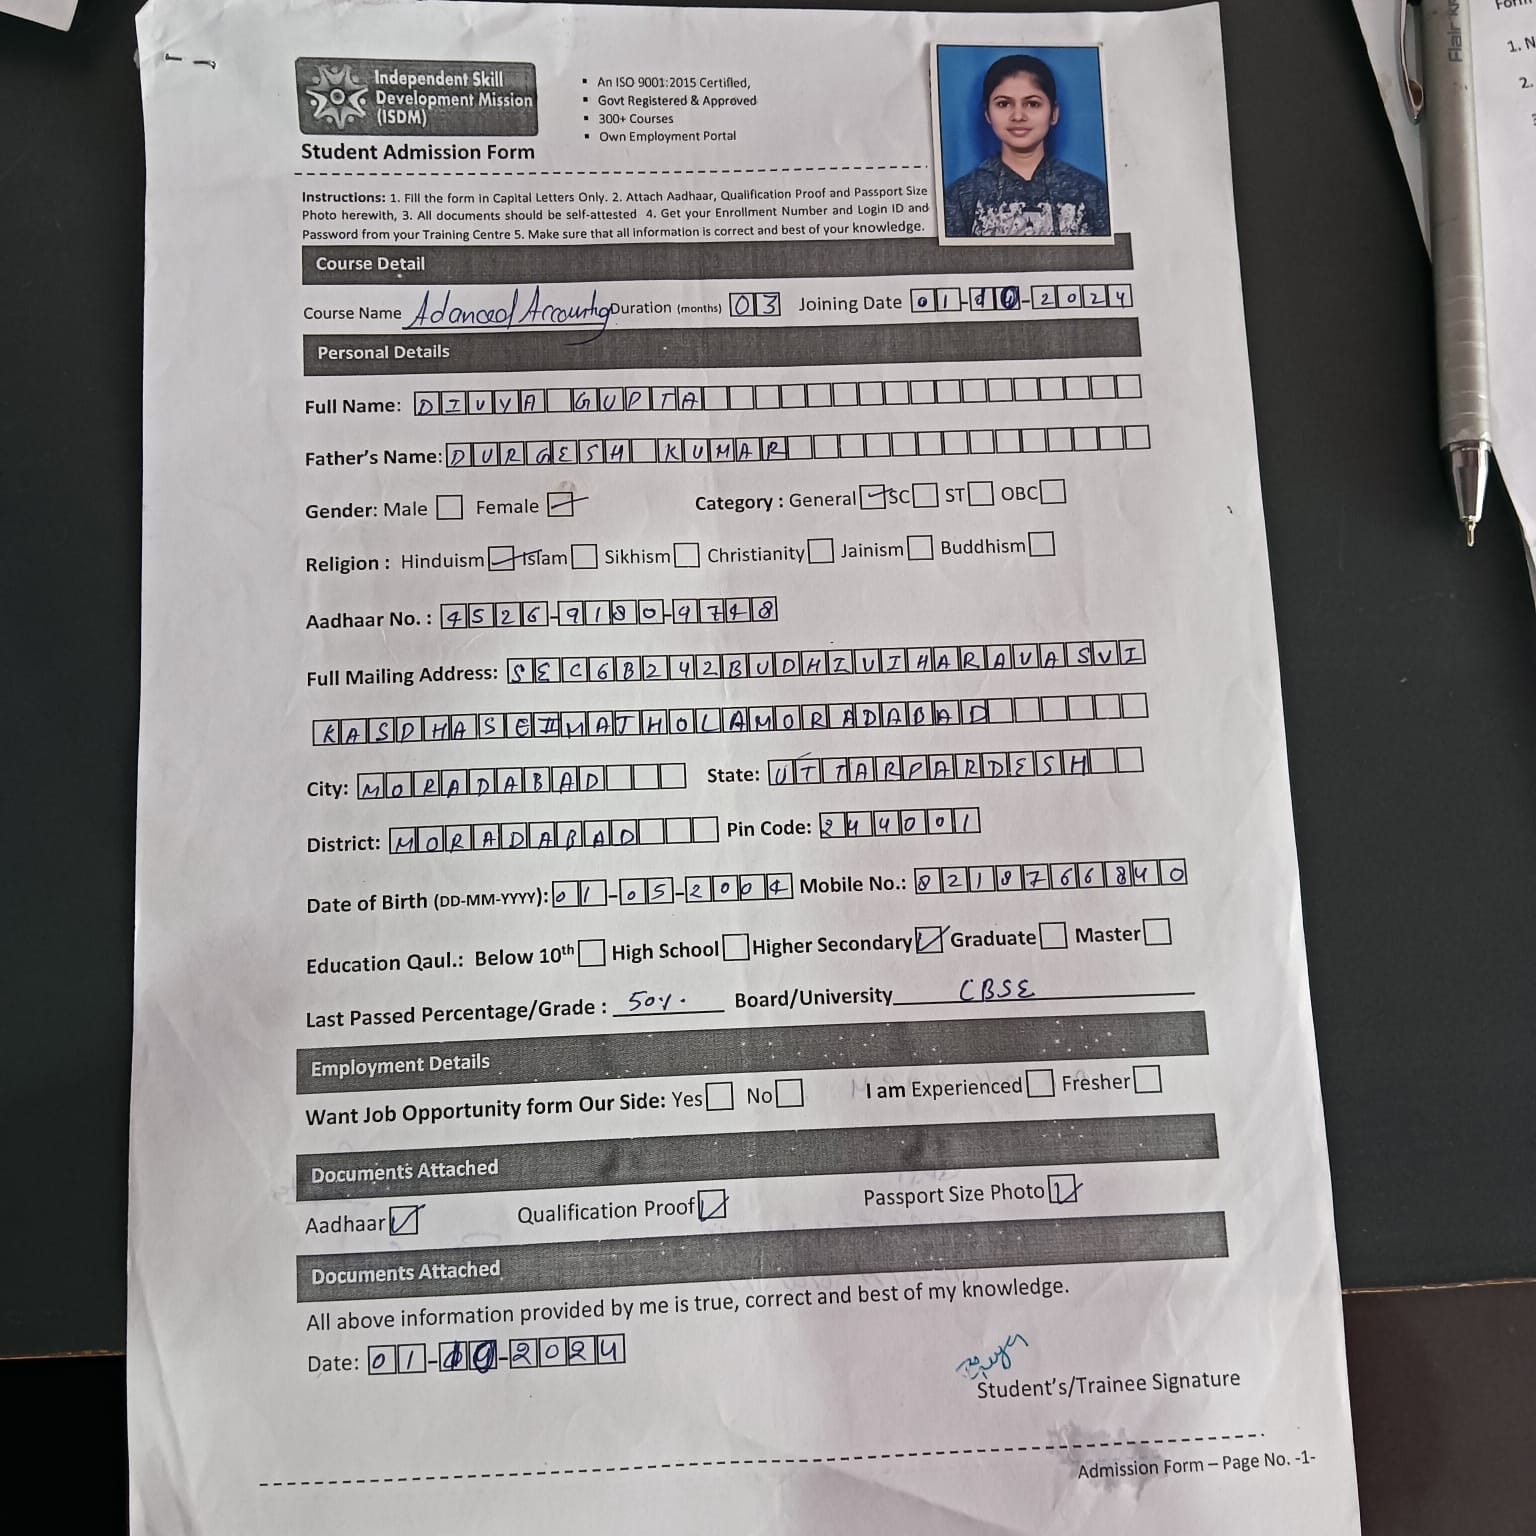 Independent Skill
Development Mission
(ISDM)
▪ An ISO 9001:2015 Certified,
▪ Govt Registered & Approved
▪ 300+ Courses
▪ Own Employment Portal
Student Admission Form
Instructions: 1. Fill the form in Capital Letters Only. 2. Attach Aadhaar, Qualification Proof and Passport Size
Photo herewith, 3. All documents should be self-attested 4. Get your Enrollment Number and Login ID and
Password from your Training Centre 5. Make sure that all information is correct and best of your knowledge.
Course Detail
Course Name Adanced Accounting Duration (months) 03 Joining Date 01- -2024
Personal Details
Full Name: DIVYA GUPTA
Father's Name: DURGESH KUMAR
Gender: Male Female Category : General SC ST OBC
Religion : Hinduism Islam Sikhism Christianity Jainism Buddhism
Aadhaar No. : 4526-9180-9748
Full Mailing Address: SEC6B242BUDHIVIHARAVASVI
KASPHASEIIMAJHOLAMORADABAD
City: MORADABAD State: UTTARPARDESH
District: MORADABAD Pin Code: 244001
Date of Birth (DD-MM-YYYY): 01-05-2004 Mobile No.: 8218766840
Education Qaul.: Below 10th High School Higher Secondary Graduate Master
Last Passed Percentage/Grade : 50%. Board/University CBSE
Employment Details
Want Job Opportunity form Our Side: Yes No I am Experienced Fresher
Documents Attached
Aadhaar Qualification Proof Passport Size Photo
Documents Attached
All above information provided by me is true, correct and best of my knowledge.
Date: 01- -2024
Student's/Trainee Signature
Admission Form – Page No. -1-
Flair
1. N
2.